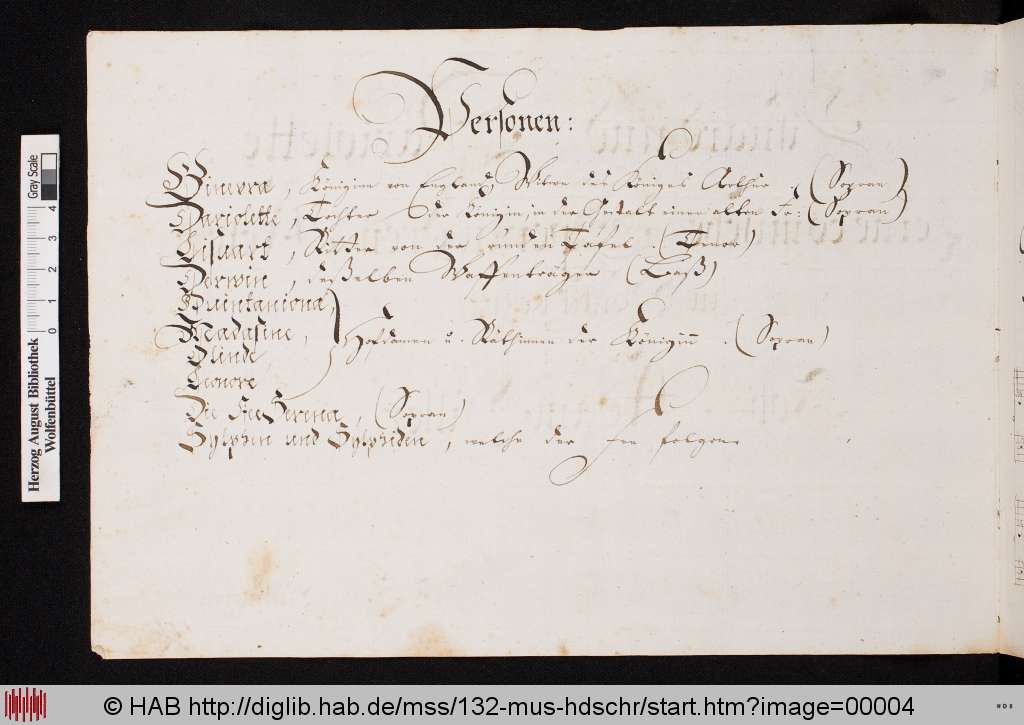 Personen:
Ginevra, Königinn von England, Witwe des Königes Arthur. (Sopran)
Mariolette, Tochter der Königin, in der Gestalt einer alten Fr: (Sopran)
Lisuart, Ritter von der runden Tafel. (Tenor)
Derwin, deßelben Waffenträger (Baß)
Quintaniona,
Madasine, Hofdamen u. Räthinnen der Königin. (Sopran)
Olinde
Leonore
Die Fee Serena, (Sopran)
Sylphen und Sylphiden, welche der Fee folgen
Gray Scale
0 1 2 3 4
Herzog August Bibliothek
Wolfenbüttel
© HAB http://diglib.hab.de/mss/132-mus-hdschr/start.htm?image=00004